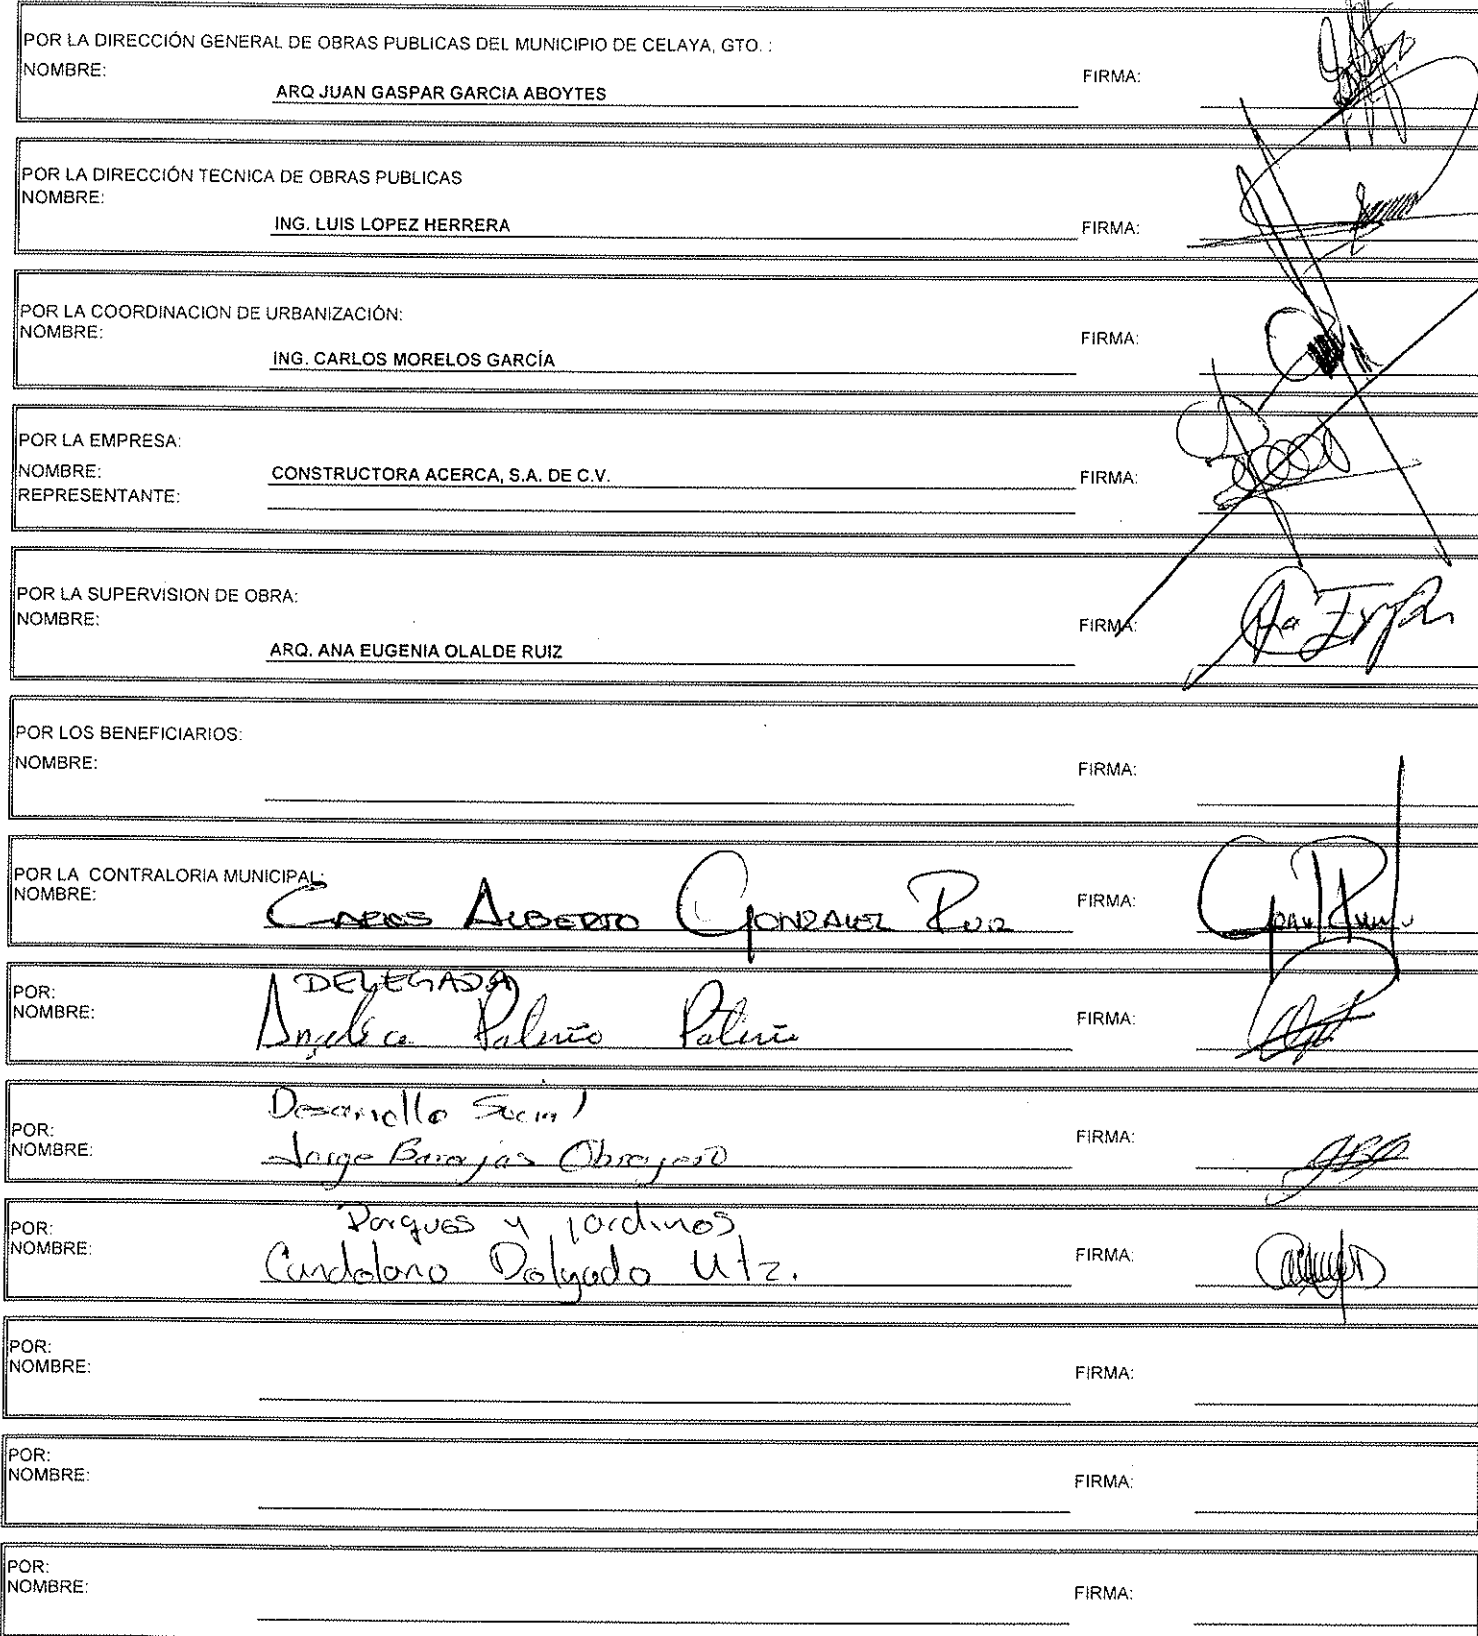 POR LA DIRECCIÓN GENERAL DE OBRAS PUBLICAS DEL MUNICIPIO DE CELAYA, GTO. :
NOMBRE:
ARQ JUAN GASPAR GARCIA ABOYTES
FIRMA:
POR LA DIRECCIÓN TECNICA DE OBRAS PUBLICAS
NOMBRE:
ING. LUIS LOPEZ HERRERA
FIRMA:
POR LA COORDINACION DE URBANIZACIÓN:
NOMBRE:
ING. CARLOS MORELOS GARCÍA
FIRMA:
POR LA EMPRESA:
NOMBRE: CONSTRUCTORA ACERCA, S.A. DE C.V. FIRMA:
REPRESENTANTE:
POR LA SUPERVISION DE OBRA:
NOMBRE:
ARQ. ANA EUGENIA OLALDE RUIZ
FIRMA:
POR LOS BENEFICIARIOS:
NOMBRE: FIRMA:
POR LA CONTRALORIA MUNICIPAL:
NOMBRE: CARLOS ALBERTO GONZALEZ RUIZ FIRMA:
POR: DELEGADA
NOMBRE: Angelica FIRMA:
POR: Desarrollo Social
NOMBRE: Jorge Barajas FIRMA:
POR: Parques y jardines
NOMBRE: Candelario Delgado FIRMA:
POR:
NOMBRE: FIRMA:
POR:
NOMBRE: FIRMA:
POR:
NOMBRE: FIRMA: